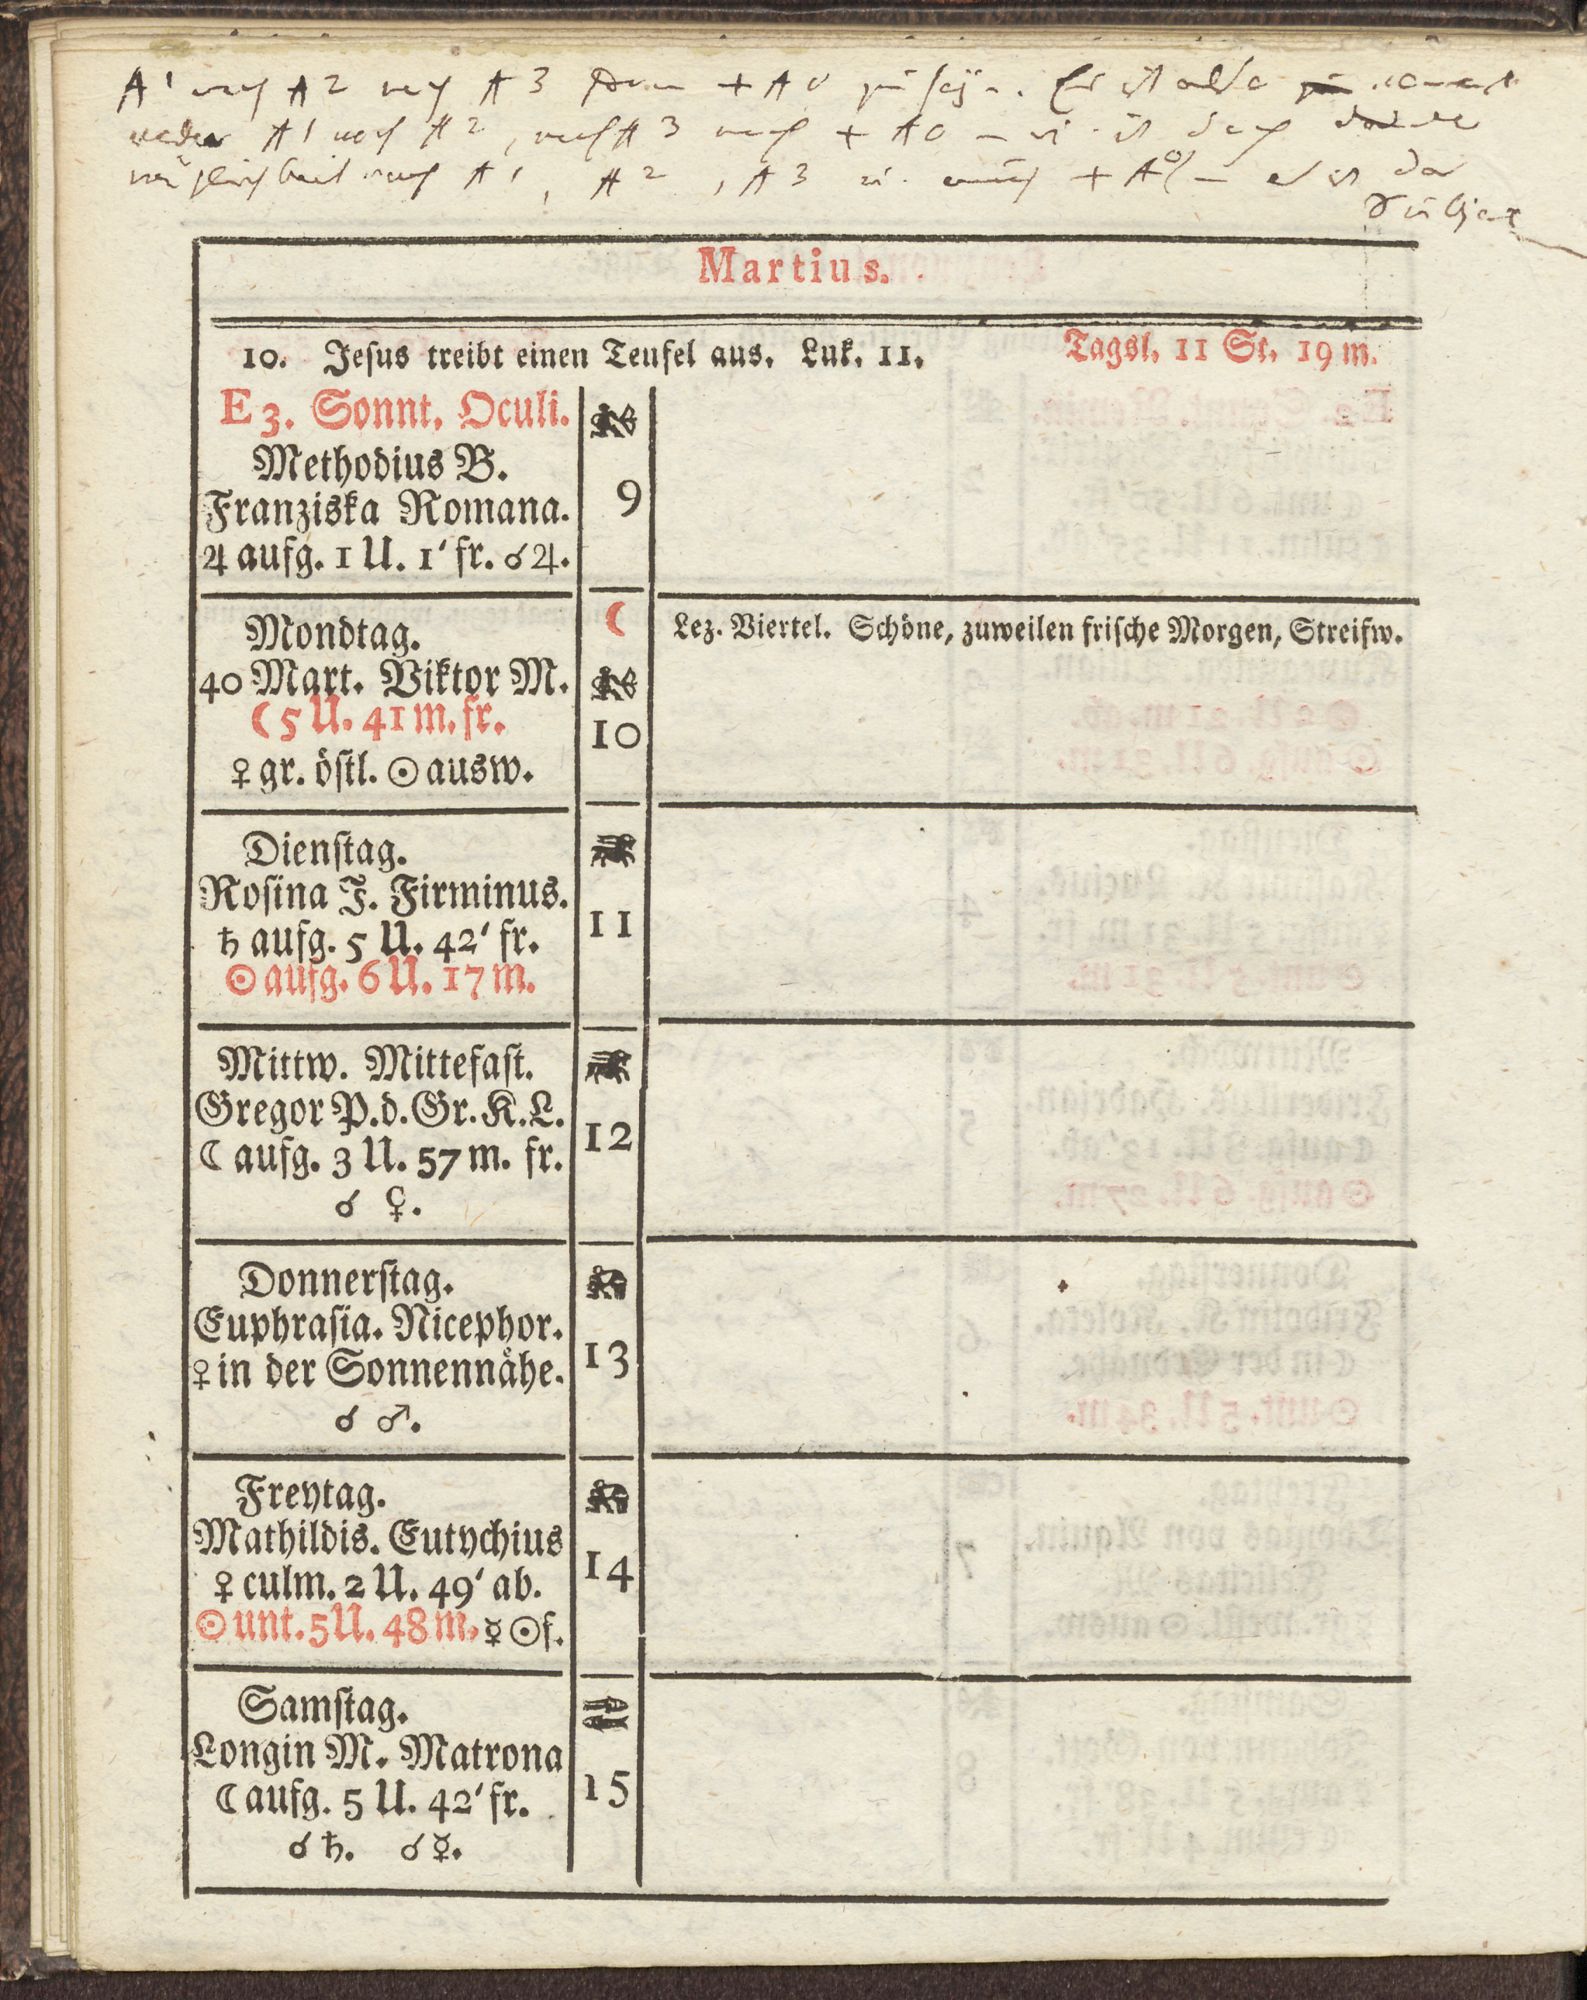 A 1 noch A 2 noch A 3 + A 0 zu seyn. Er ist also
weder A 1 noch A 2, noch A 3 noch + A 0 ist
A 1, A 2, A 3 + A 0 er ist
Martius.
10. Jeſus treibt einen Teufel aus. Luk. 11. Tagsl. 11 St. 19 m.
E 3. Sonnt. Oculi.
Methodius B.
Franziska Romana. 9
♃ aufg. 1 U. 1' fr. ☌ ♃.
Mondtag. ☾ Lez. Viertel. Schöne, zuweilen friſche Morgen, Streifw.
40 Mart. Viktor M.
☾ 5 U. 41 m. fr. 10
♀ gr. öſtl. ☉ ausw.
Dienſtag.
Roſina J. Firminus. 11
♄ aufg. 5 U. 42' fr.
☉ aufg. 6 U. 17 m.
Mittw. Mittefaſt.
Gregor P. d. Gr. K. L. 12
☾ aufg. 3 U. 57 m. fr.
☌ ♀.
Donnerſtag.
Euphraſia. Nicephor. 13
♀ in der Sonnennåhe.
☌ ♂.
Freytag.
Mathildis. Eutychius 14
♀ culm. 2 U. 49' ab.
☉ unt. 5 U. 48 m. ☿ ☉ f.
Samſtag.
Longin M. Matrona
☾ aufg. 5 U. 42' fr. 15
☌ ♄. ☌ ☿.